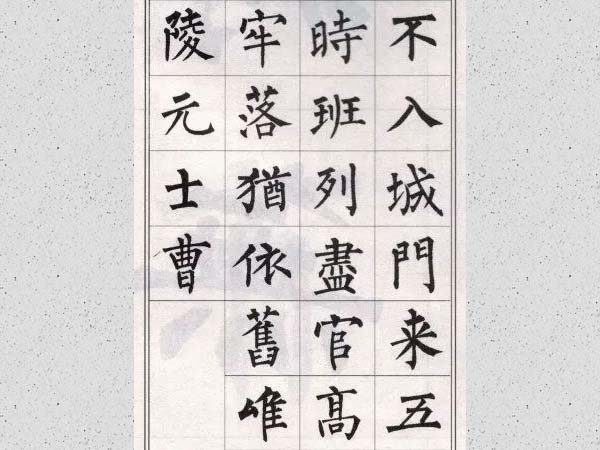 不入城門来五
時班列盡官高
牢落猶依舊唯
陵元士曹